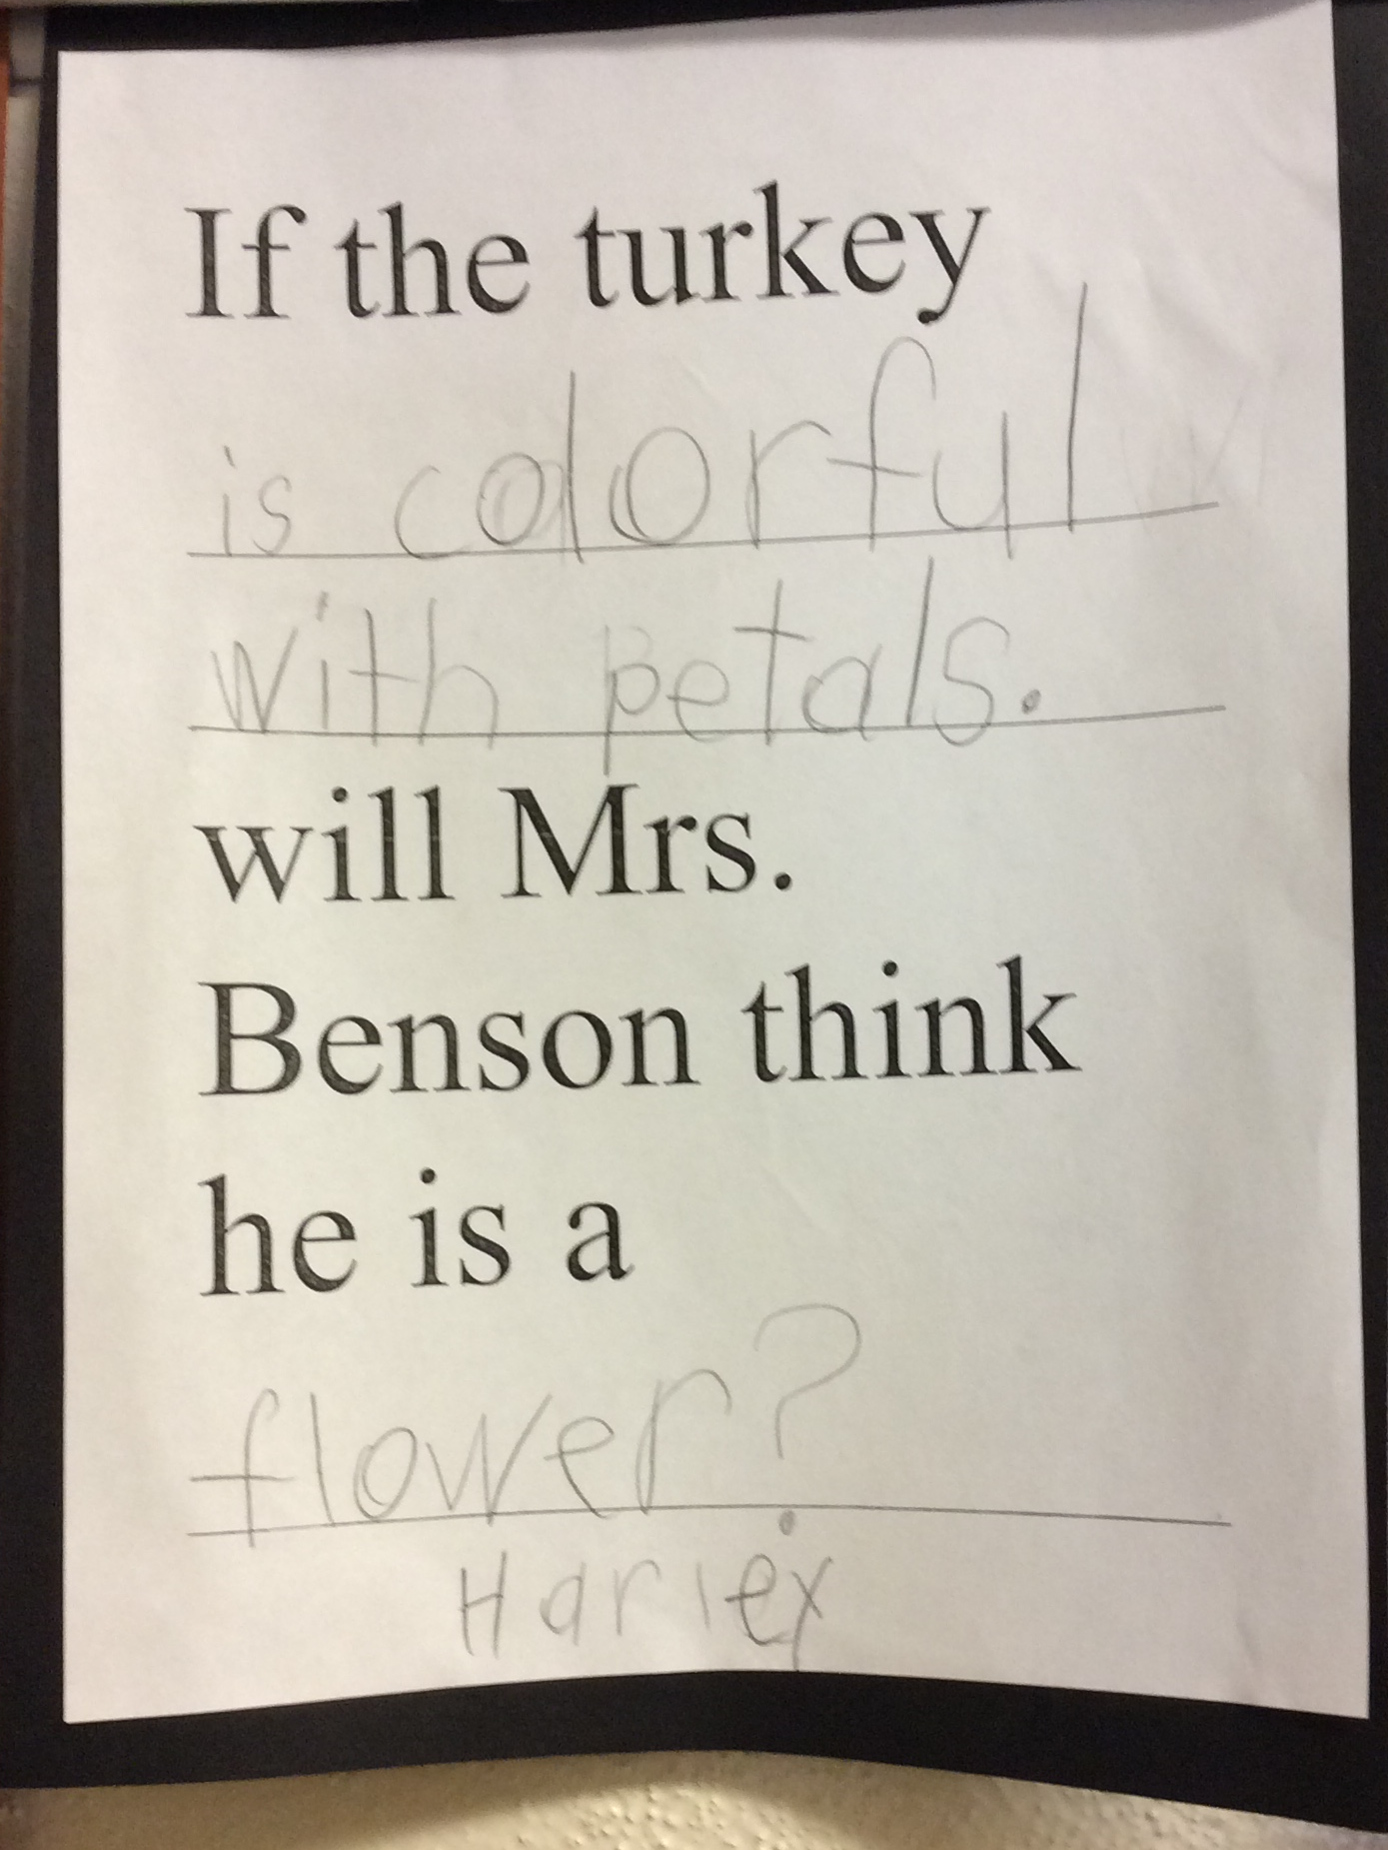 If the turkey
is colorful
with petals.
will Mrs.
Benson think
he is a
flower?
Harley